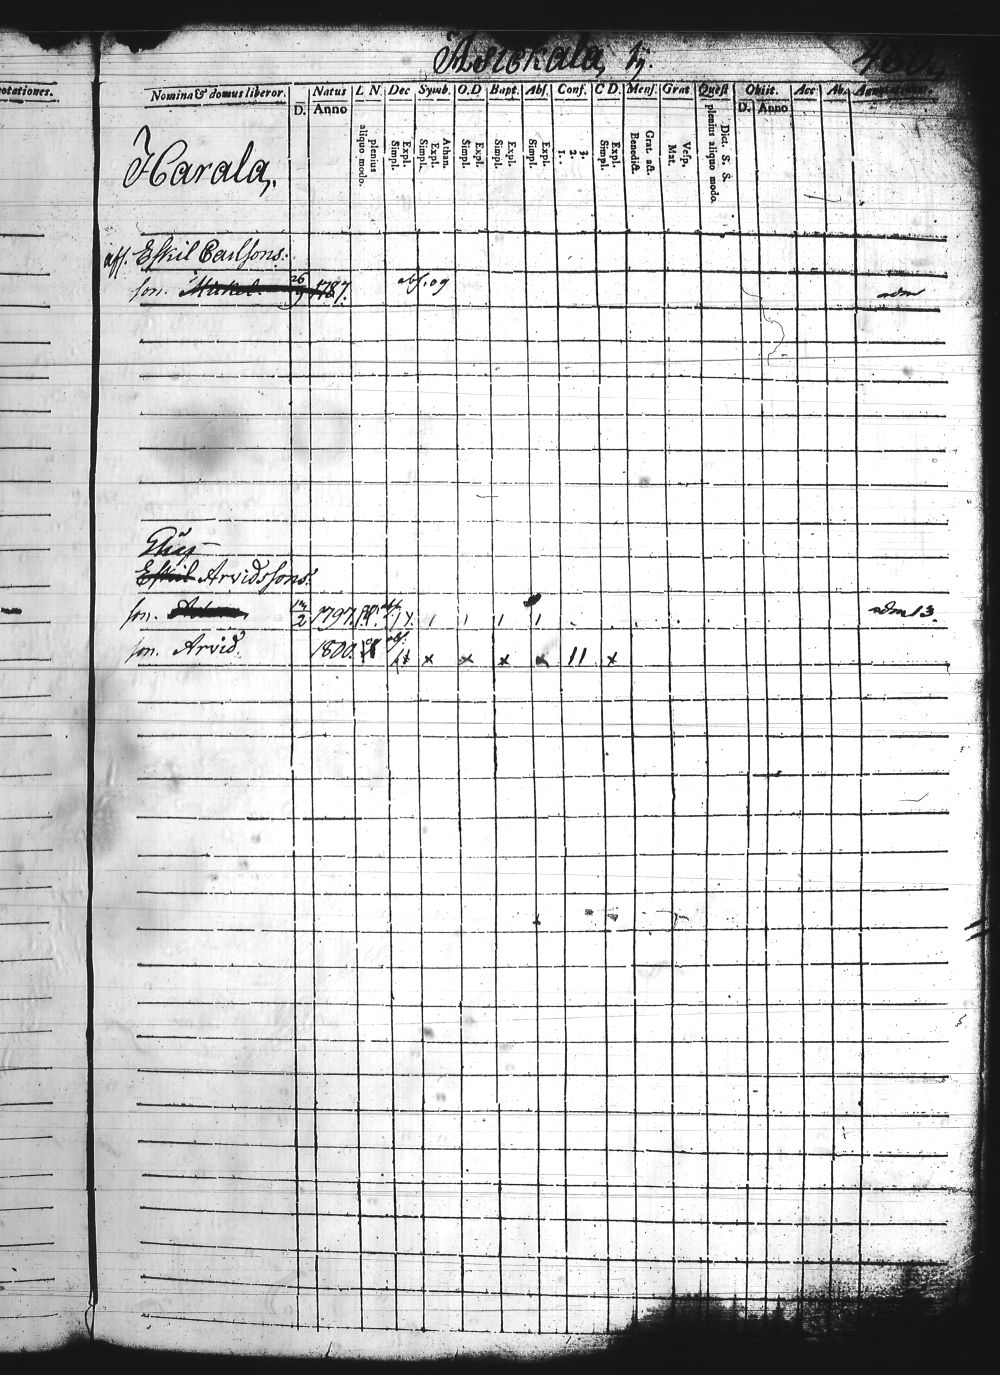 Asickala, by.
460.
otationes.
Nomina & domus liberor. Natus L N. Dec Symb. O.D Bapt. Abs. Conf. C D. Mens. Grat Quest Obiit. Acc Ab. Annotationes.
D. Anno D. Anno
plenius aliquo modo. Expl. Simpl. Athan. Expl. Simpl. Expl. Simpl. Expl. Simpl. Expl. Simpl. 3. 2. 1. Expl Simpl. Grat. act. Benedict. Vesp. Mat. Dict. S. S. plenius aliquo modo.
Harala,
aff. Eskil Carlsons:
son. Mickel 26/9 1787. abs. 09 adm
Elias
Eskil Arvidssons:
son. Adam 1797. adm 13.
son. Arvid. 1800. x x x x 11 x